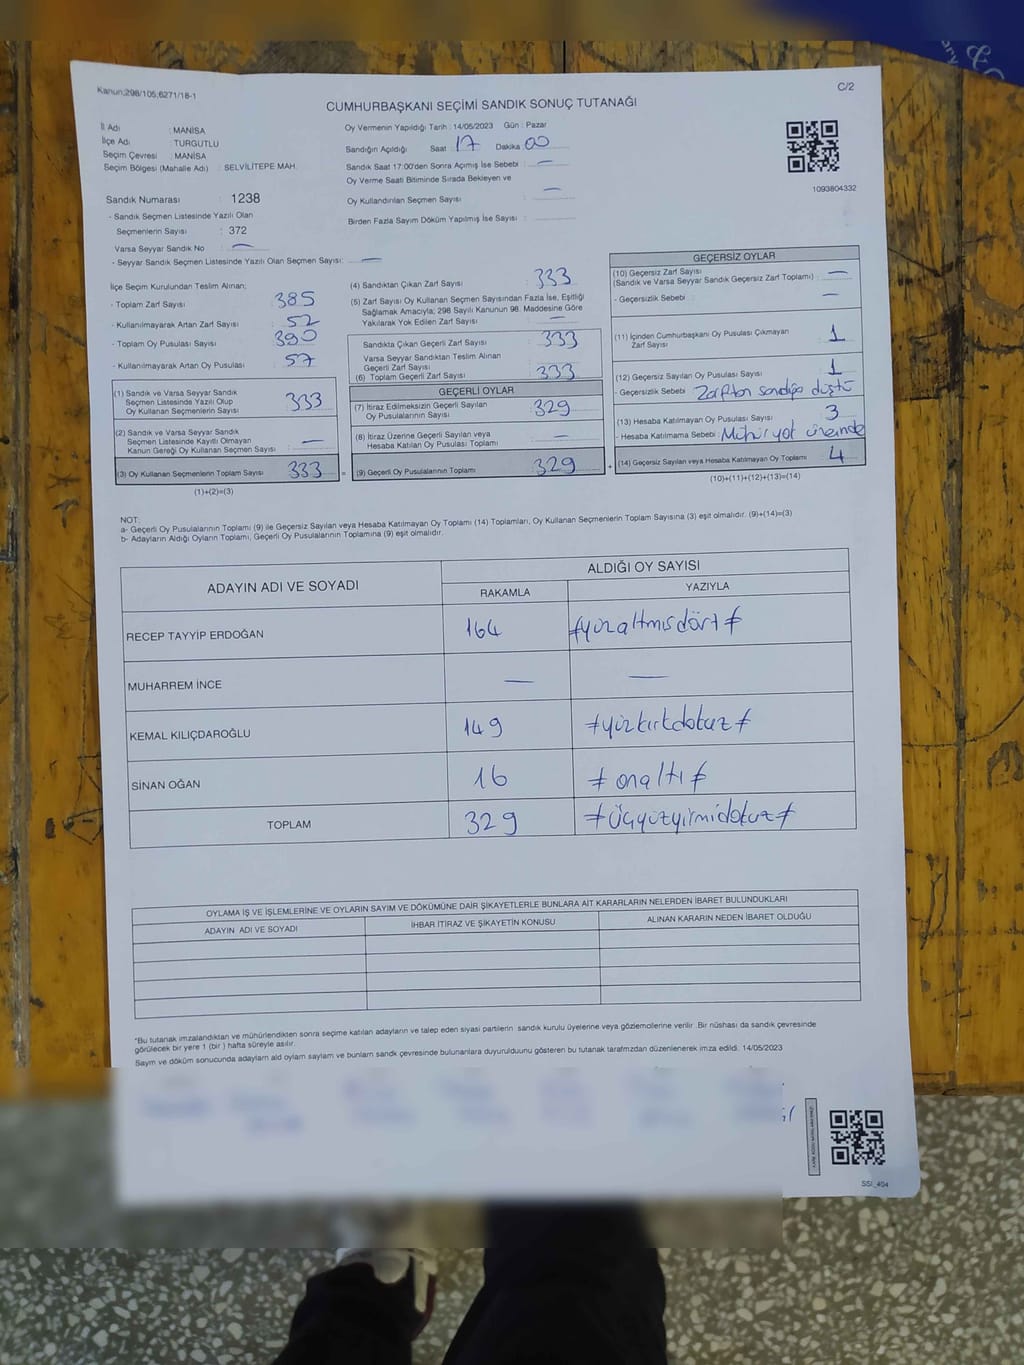 Kanun;298/105;6271/18-1
C/2
CUMHURBAŞKANI SEÇİMİ SANDIK SONUÇ TUTANAĞI
İl Adı : MANİSA
İlçe Adı : TURGUTLU
Seçim Çevresi : MANİSA
Seçim Bölgesi (Mahalle Adı) : SELVİLİTEPE MAH.
Oy Vermenin Yapıldığı Tarih : 14/05/2023 Gün : Pazar
Sandığın Açıldığı Saat : 17 Dakika 00
Sandık Saat 17:00'den Sonra Açılmış İse Sebebi : —
Oy Verme Saati Bitiminde Sırada Bekleyen ve
Oy Kullandırılan Seçmen Sayısı : —
Birden Fazla Sayım Döküm Yapılmış İse Sayısı :
1093804332
Sandık Numarası : 1238
- Sandık Seçmen Listesinde Yazılı Olan
Seçmenlerin Sayısı : 372
Varsa Seyyar Sandık No : —
- Seyyar Sandık Seçmen Listesinde Yazılı Olan Seçmen Sayısı: —
İlçe Seçim Kurulundan Teslim Alınan;
- Toplam Zarf Sayısı : 385
- Kullanılmayarak Artan Zarf Sayısı : 52
- Toplam Oy Pusulası Sayısı : 390
- Kullanılmayarak Artan Oy Pusulası : 57
(1) Sandık ve Varsa Seyyar Sandık
Seçmen Listesinde Yazılı Olup
Oy Kullanan Seçmenlerin Sayısı : 333
(2) Sandık ve Varsa Seyyar Sandık
Seçmen Listesinde Kayıtlı Olmayan
Kanun Gereği Oy Kullanan Seçmen Sayısı : —
(3) Oy Kullanan Seçmenlerin Toplam Sayısı : 333
(1)+(2)=(3)
(4) Sandıktan Çıkan Zarf Sayısı : 333
(5) Zarf Sayısı Oy Kullanan Seçmen Sayısından Fazla İse, Eşitliği
Sağlamak Amacıyla; 298 Sayılı Kanunun 98. Maddesine Göre
Yakılarak Yok Edilen Zarf Sayısı : —
Sandıkta Çıkan Geçerli Zarf Sayısı : 333
Varsa Seyyar Sandıktan Teslim Alınan
Geçerli Zarf Sayısı :
(6) Toplam Geçerli Zarf Sayısı : 333
GEÇERLİ OYLAR
(7) İtiraz Edilmeksizin Geçerli Sayılan
Oy Pusulalarının Sayısı : 329
(8) İtiraz Üzerine Geçerli Sayılan veya
Hesaba Katılan Oy Pusulası Toplamı : —
= (9) Geçerli Oy Pusulalarının Toplamı : 329 +
GEÇERSİZ OYLAR
(10) Geçersiz Zarf Sayısı
(Sandık ve Varsa Seyyar Sandık Geçersiz Zarf Toplamı) : —
- Geçersizlik Sebebi : —
(11) İçinden Cumhurbaşkanı Oy Pusulası Çıkmayan
Zarf Sayısı : 1
(12) Geçersiz Sayılan Oy Pusulası Sayısı : 1
- Geçersizlik Sebebi : Zarftan sandığa düştü
(13) Hesaba Katılmayan Oy Pusulası Sayısı : 3
- Hesaba Katılmama Sebebi : Mühür yok üzerinde
(14) Geçersiz Sayılan veya Hesaba Katılmayan Oy Toplamı : 4
(10)+(11)+(12)+(13)=(14)
NOT:
a- Geçerli Oy Pusulalarının Toplamı (9) ile Geçersiz Sayılan veya Hesaba Katılmayan Oy Toplamı (14) Toplamları, Oy Kullanan Seçmenlerin Toplam Sayısına (3) eşit olmalıdır. (9)+(14)=(3)
b- Adayların Aldığı Oyların Toplamı, Geçerli Oy Pusulalarının Toplamına (9) eşit olmalıdır.
ADAYIN ADI VE SOYADI
ALDIĞI OY SAYISI
RAKAMLA YAZIYLA
RECEP TAYYİP ERDOĞAN 164 #yüzaltmışdört#
MUHARREM İNCE — —
KEMAL KILIÇDAROĞLU 149 #yüzkırkdokuz#
SİNAN OĞAN 16 #onaltı#
TOPLAM 329 #üçyüzyirmidokuz#
OYLAMA İŞ VE İŞLEMLERİNE VE OYLARIN SAYIM VE DÖKÜMÜNE DAİR ŞİKAYETLERLE BUNLARA AİT KARARLARIN NELERDEN İBARET BULUNDUKLARI
ADAYIN ADI VE SOYADI
İHBAR İTİRAZ VE ŞİKAYETİN KONUSU
ALINAN KARARIN NEDEN İBARET OLDUĞU
*Bu tutanak imzalandıktan ve mühürlendikten sonra seçime katılan adayların ve talep eden siyasi partilerin sandık kurulu üyelerine veya gözlemcilerine verilir. Bir nüshası da sandık çevresinde
görülecek bir yere 1 (bir ) hafta süreyle asılır.
Sayım ve döküm sonucunda adayların aldı oylam saylam ve bunların sandık çevresinde bulunanlara duyurulduunu gösteren bu tutanak tarafımzdan düzenlenerek imza edildi. 14/05/2023
SSI_404